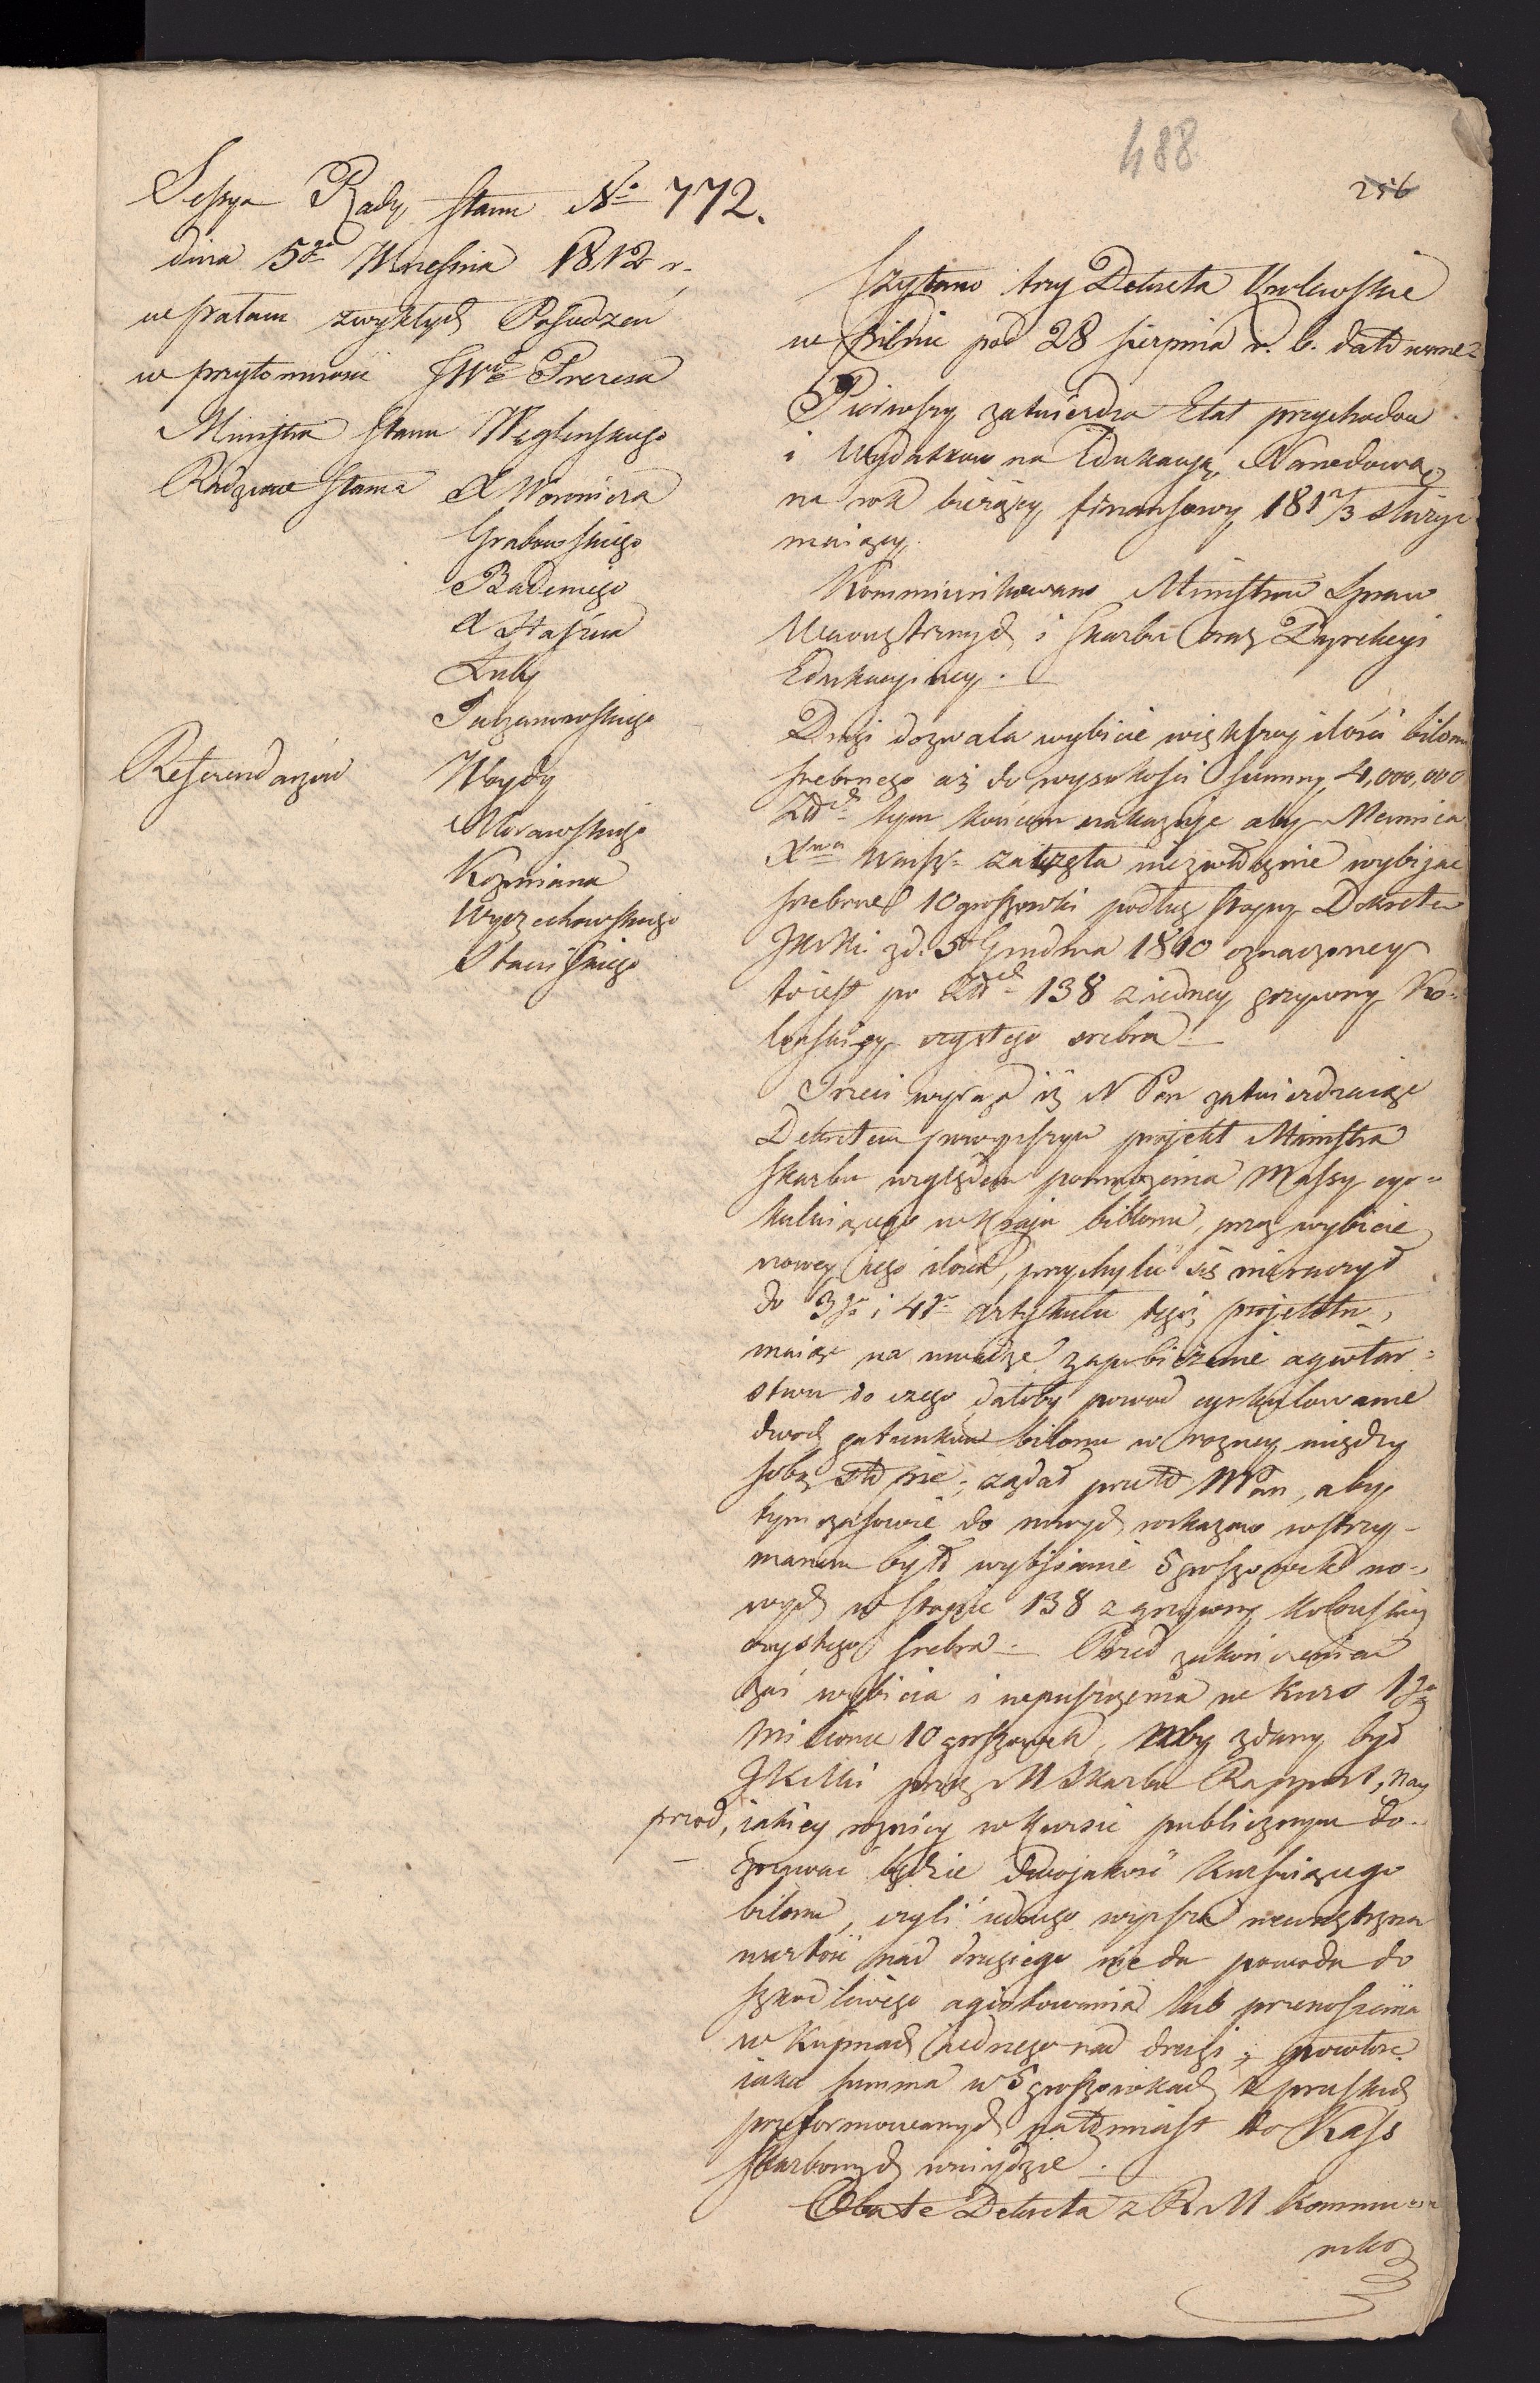 488
256
Sessya Rady Stanu No 772.
dnia 5go Wrzesnia 1812 r.
w pałacu zwykłych Posiedzeń
w przytomności JWo Prezesa
Ministra Stanu Węglenskiego
Radzców Stanu X Woronicza
Grabowskiego
Badeniego
X Staszica
Łuby
Referendarzów Woydy
Morawskiego
Kozmiana
Wyczechowskiego
Czytano trzy Dekreta Krolewskie
w Pilnic pod 28 sierpnia r. b. datowane
Pierwszy zatwierdza Etat przychodów
i Wydatkow na Edukacyą Narodową
na rok bieżący finansowy 181 2/3 służyć
maiący.
Kommunikowano Ministrom Spraw
Wewnętrznych i Skarbu oraz Dyrekcyi
Edukacyiney.
Drugi dozwala wybicie większey ilości bilonu
srebrnego aż do wysokości summy 4,000,000
Złch tym końcem nakazuje aby Mennica
Xwa Warsz. zaczęła niezwłocznie wybijac
srebrne 10 groszowki podług stopy Dekretem
JKMci zd. 5 Grudnia 1810 oznaczoney
toiest po Złch 138 z iedney grzywny Ko-
lońskiey czystego srebra.
Trzeci wyraża iż N Pan zatwierdzaiąc
Dekretem powyższym projekt Ministra
Skarbu względem pomnożenia Massy cyr-
kuluiącego w Kraju billonu, przez wybicie
nowey iego ilości, przychylić się nieraczył
do 3go i 4go artykułu tegoż projektu,
maiąc na uwadze zapobieżenie agiotar-
stwu do czego dałoby powod cyrkulowanie
dwoch gatunków bilonu w rozney między
sobą stopie; żądał przeto NPan, aby
tymczasowie do nowych rozkazow wstrzy-
manem było wybijanie 5 groszowek no-
wych w stopie 138 z grzywny Kolońskiey
czystego srebra. Przed zakończeniem
zaś wybicia i wpuszczenia w Kurs 1go
Miliona 10 groszowek, aby zdany był
JKMci przez M Skarbu Rapport, nay
przod, iakiey roznicy w Kursie publicznym do-
znawać będzie dwojakość Kursuiącego
bilonu, czyli iednego wyższa wewnętrzna
wartość nad drugiego nie da powodu do
szkodliwego agiotowania lub przenoszenia
w Kupnach iednego nad drugi; powtore
iaka summa w 5 groszowkach z pruskich
przeformowanych natomiast do Kass
skarbowych wniydzie.
Oba te Dekreta z R M Kommu-
niko